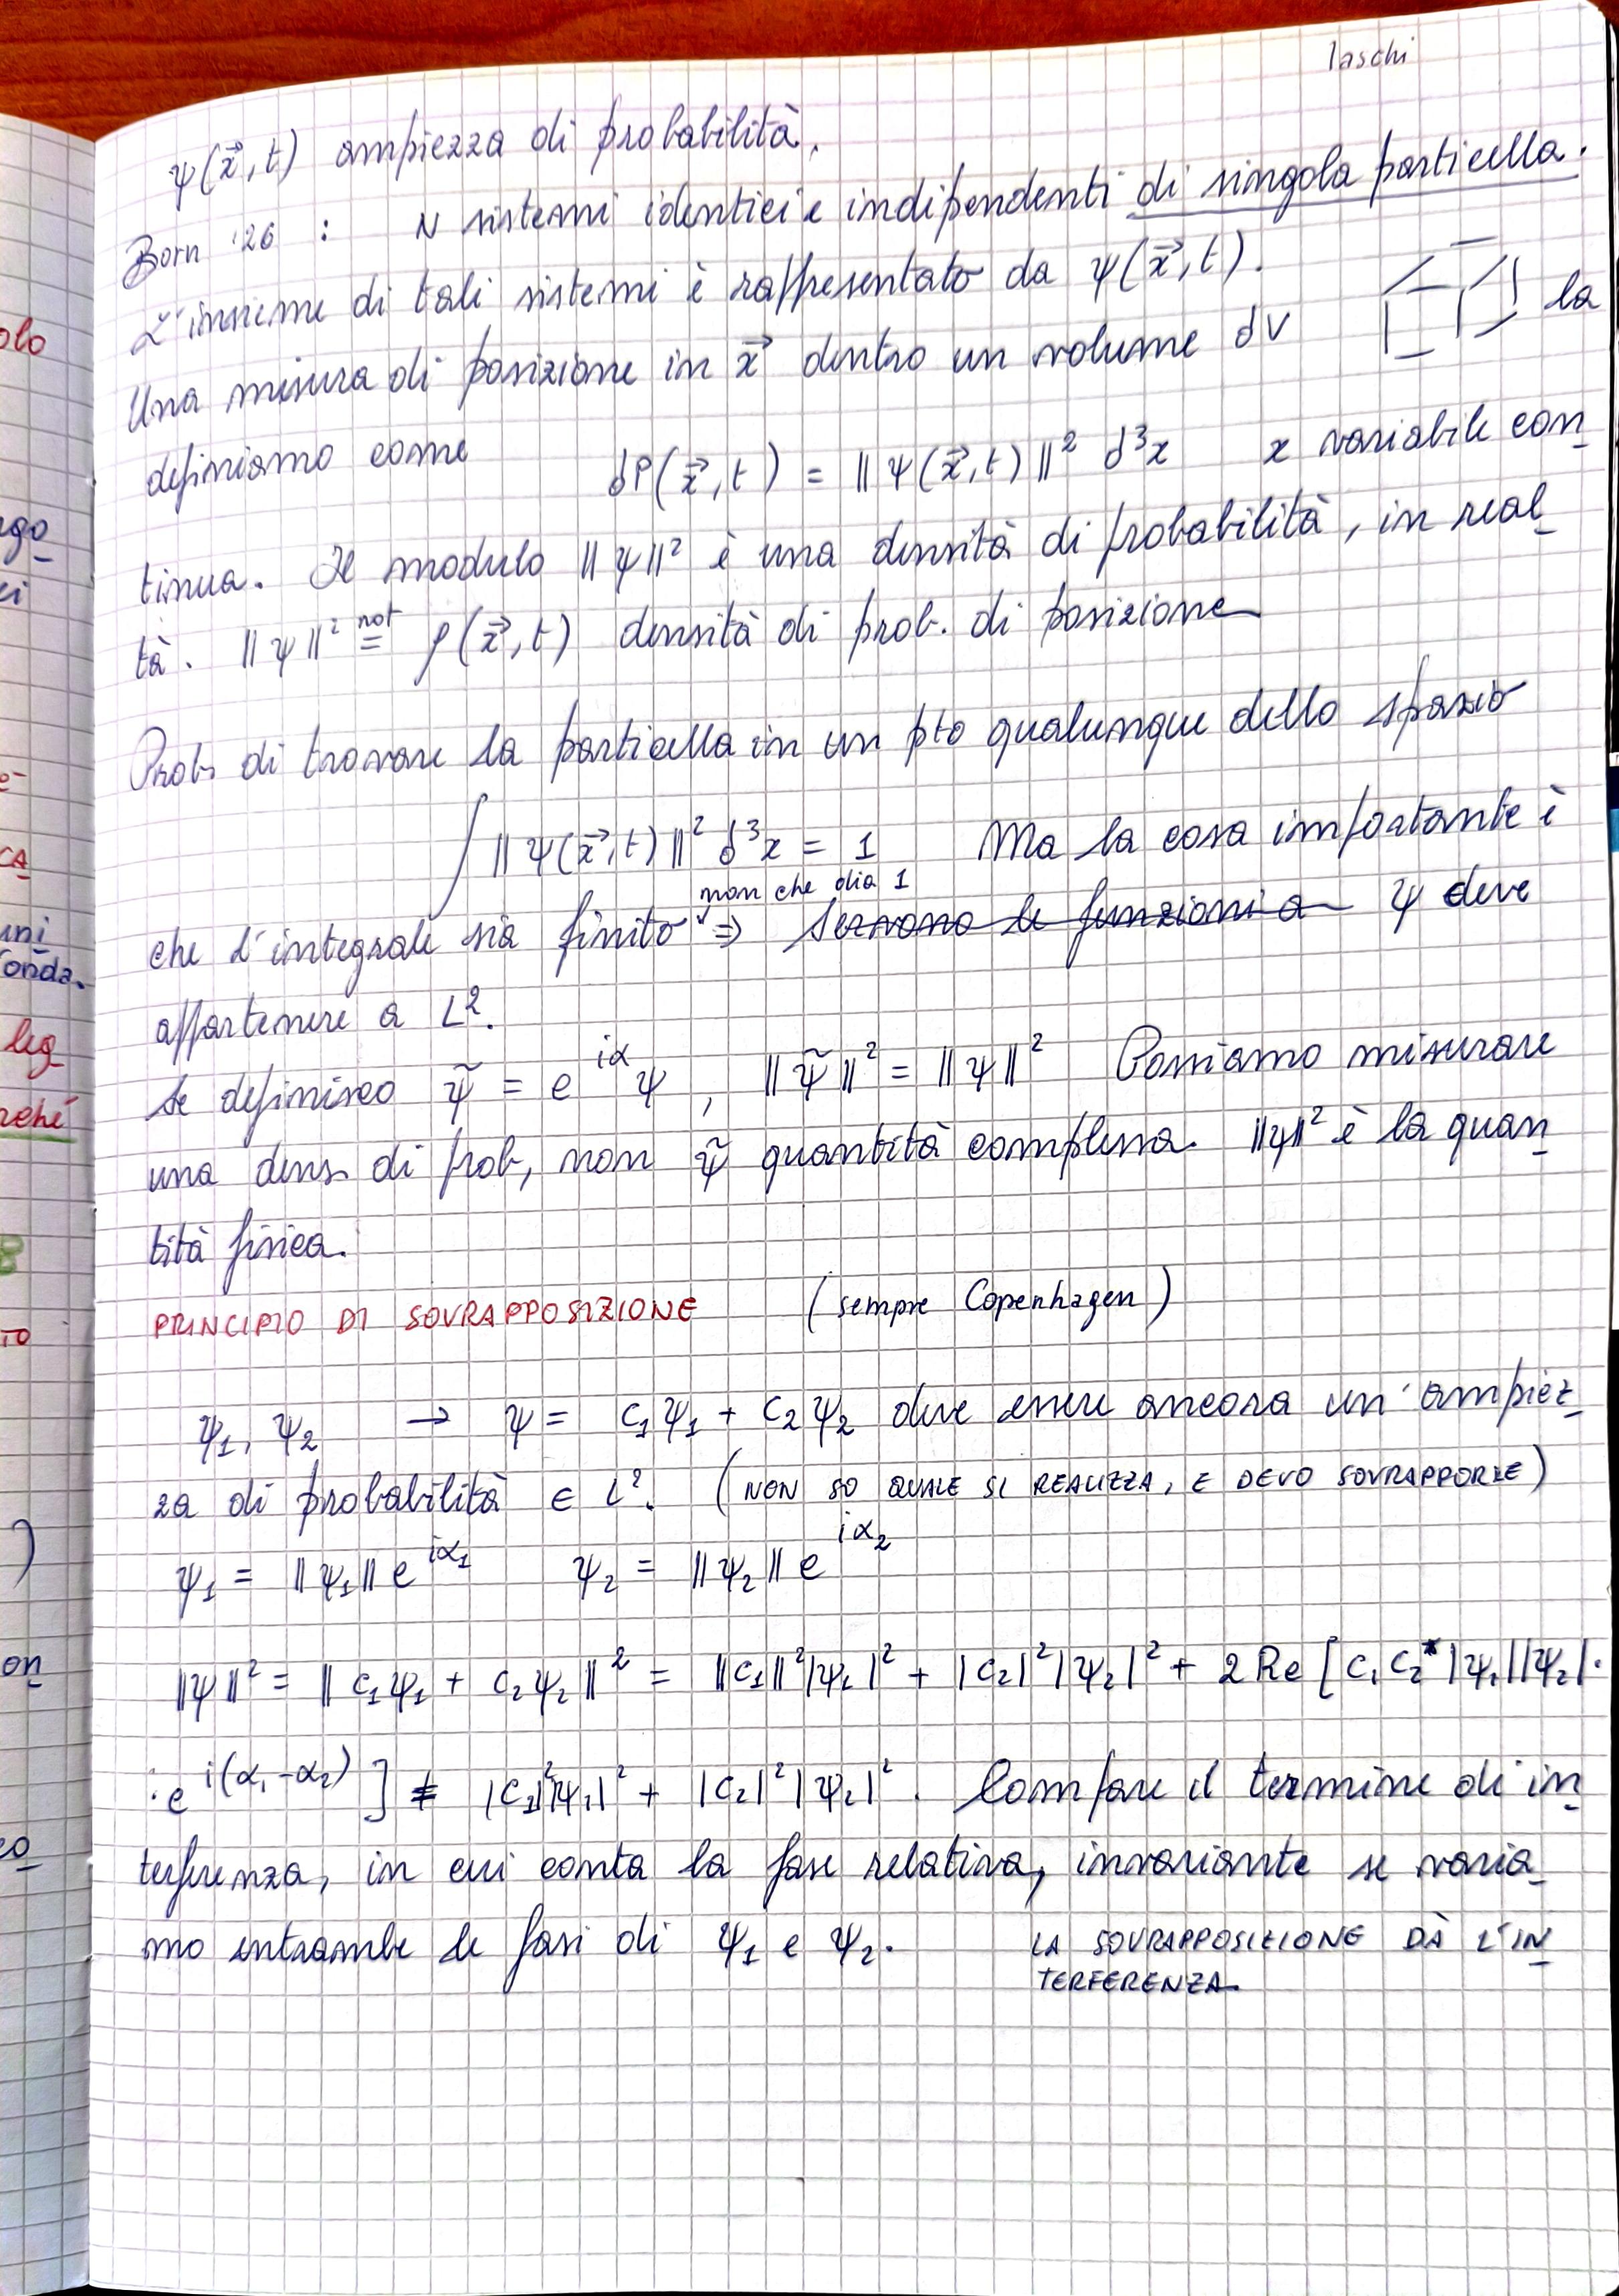 laschi
ψ(x⃗,t) ampiezza di probabilità.
Born '26 : N sistemi identici e indipendenti di singola particella.
L'insieme di tali sistemi è rappresentato da ψ(x⃗,t).
Una misura di posizione in x⃗ dentro un volume dV la
definiamo come dP(x⃗,t) = ||ψ(x⃗,t)||² d³x x variabile con
tinua. Il modulo ||ψ||² è una densità di probabilità, in real
tà. ||ψ||² not= ρ(x⃗,t) densità di prob. di posizione
Prob. di trovare la particella in un pto qualunque dello spazio
∫ ||ψ(x⃗,t)||² d³x = 1 Ma la cosa importante è
non che dia 1
che l'integrale sia finito ⇒ servono le funzioni a ψ deve
appartenere a L².
Se definisco ψ̃ = e^{iα} ψ , ||ψ̃||² = ||ψ||² Possiamo misurare
una dens. di prob, non ψ̃ quantità complessa. ||ψ||² è la quan
tità fisica.
PRINCIPIO DI SOVRAPPOSIZIONE (sempre Copenhagen)
ψ₁, ψ₂ → ψ = c₁ψ₁ + c₂ψ₂ deve essere ancora un'ampiez
za di probabilità ∈ L². (NON SO QUALE SI REALIZZA, E DEVO SOVRAPPORLE)
ψ₁ = ||ψ₁|| e^{iα₁} ψ₂ = ||ψ₂|| e^{iα₂}
||ψ||² = || c₁ψ₁ + c₂ψ₂ ||² = ||c₁||²|ψ₁|² + |c₂|²|ψ₂|² + 2Re [c₁c₂*|ψ₁||ψ₂|·
·e^{i(α₁-α₂)}] ≠ |c₁|²|ψ₁|² + |c₂|²|ψ₂|². Compare il termine di in
terferenza, in cui conta la fase relativa, invariante se varia
mo entrambe le fasi di ψ₁ e ψ₂. LA SOVRAPPOSIZIONE DÀ L'IN
TERFERENZA
olo
ei
CA
uni
onda.
leg
on